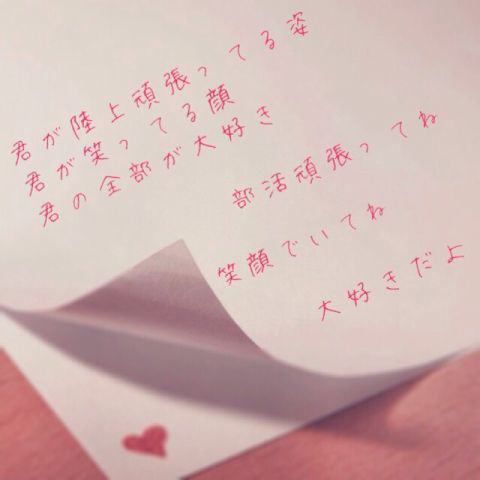 君が陸上頑張ってる姿
君が笑ってる顔
君の全部が大好き
部活頑張ってね
笑顔でいてね
大好きだよ